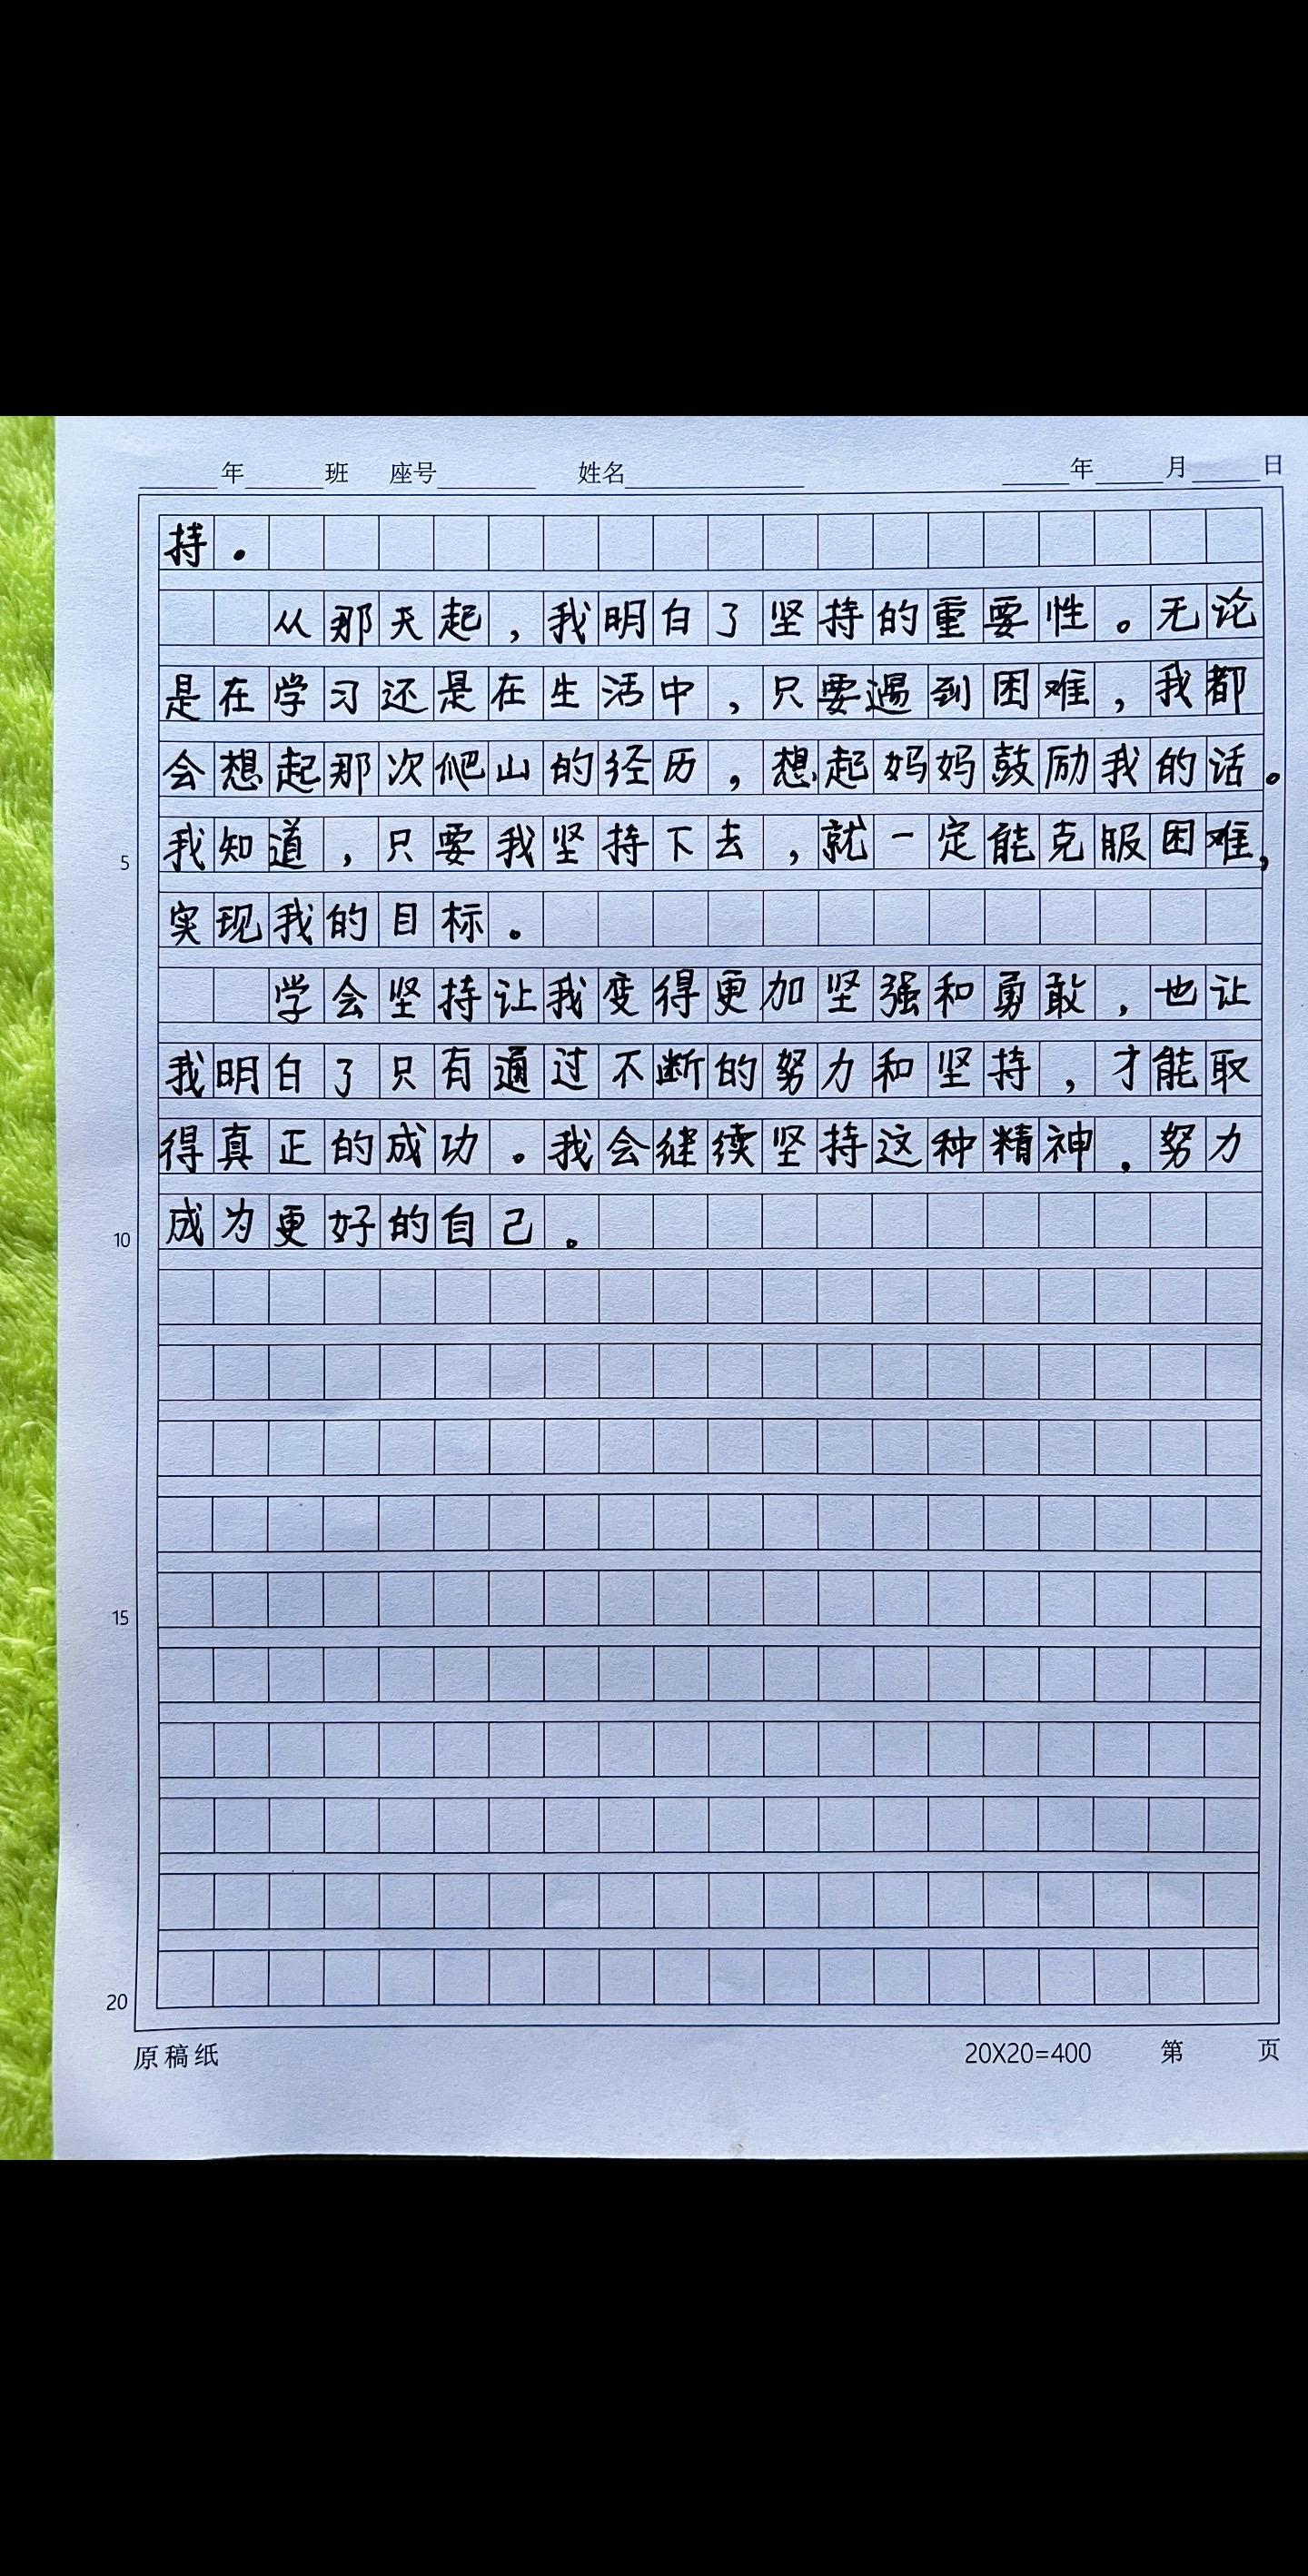 年 班 座号 姓名 年 月 日
持。
从那天起，我明白了坚持的重要性。无论
是在学习还是在生活中，只要遇到困难，我都
会想起那次爬山的经历，想起妈妈鼓励我的话。
我知道，只要我坚持下去，就一定能克服困难，
实现我的目标。
学会坚持让我变得更加坚强和勇敢，也让
我明白了只有通过不断的努力和坚持，才能取
得真正的成功。我会继续坚持这种精神，努力
成为更好的自己。
5
10
15
20
原稿纸 20X20=400 第 页